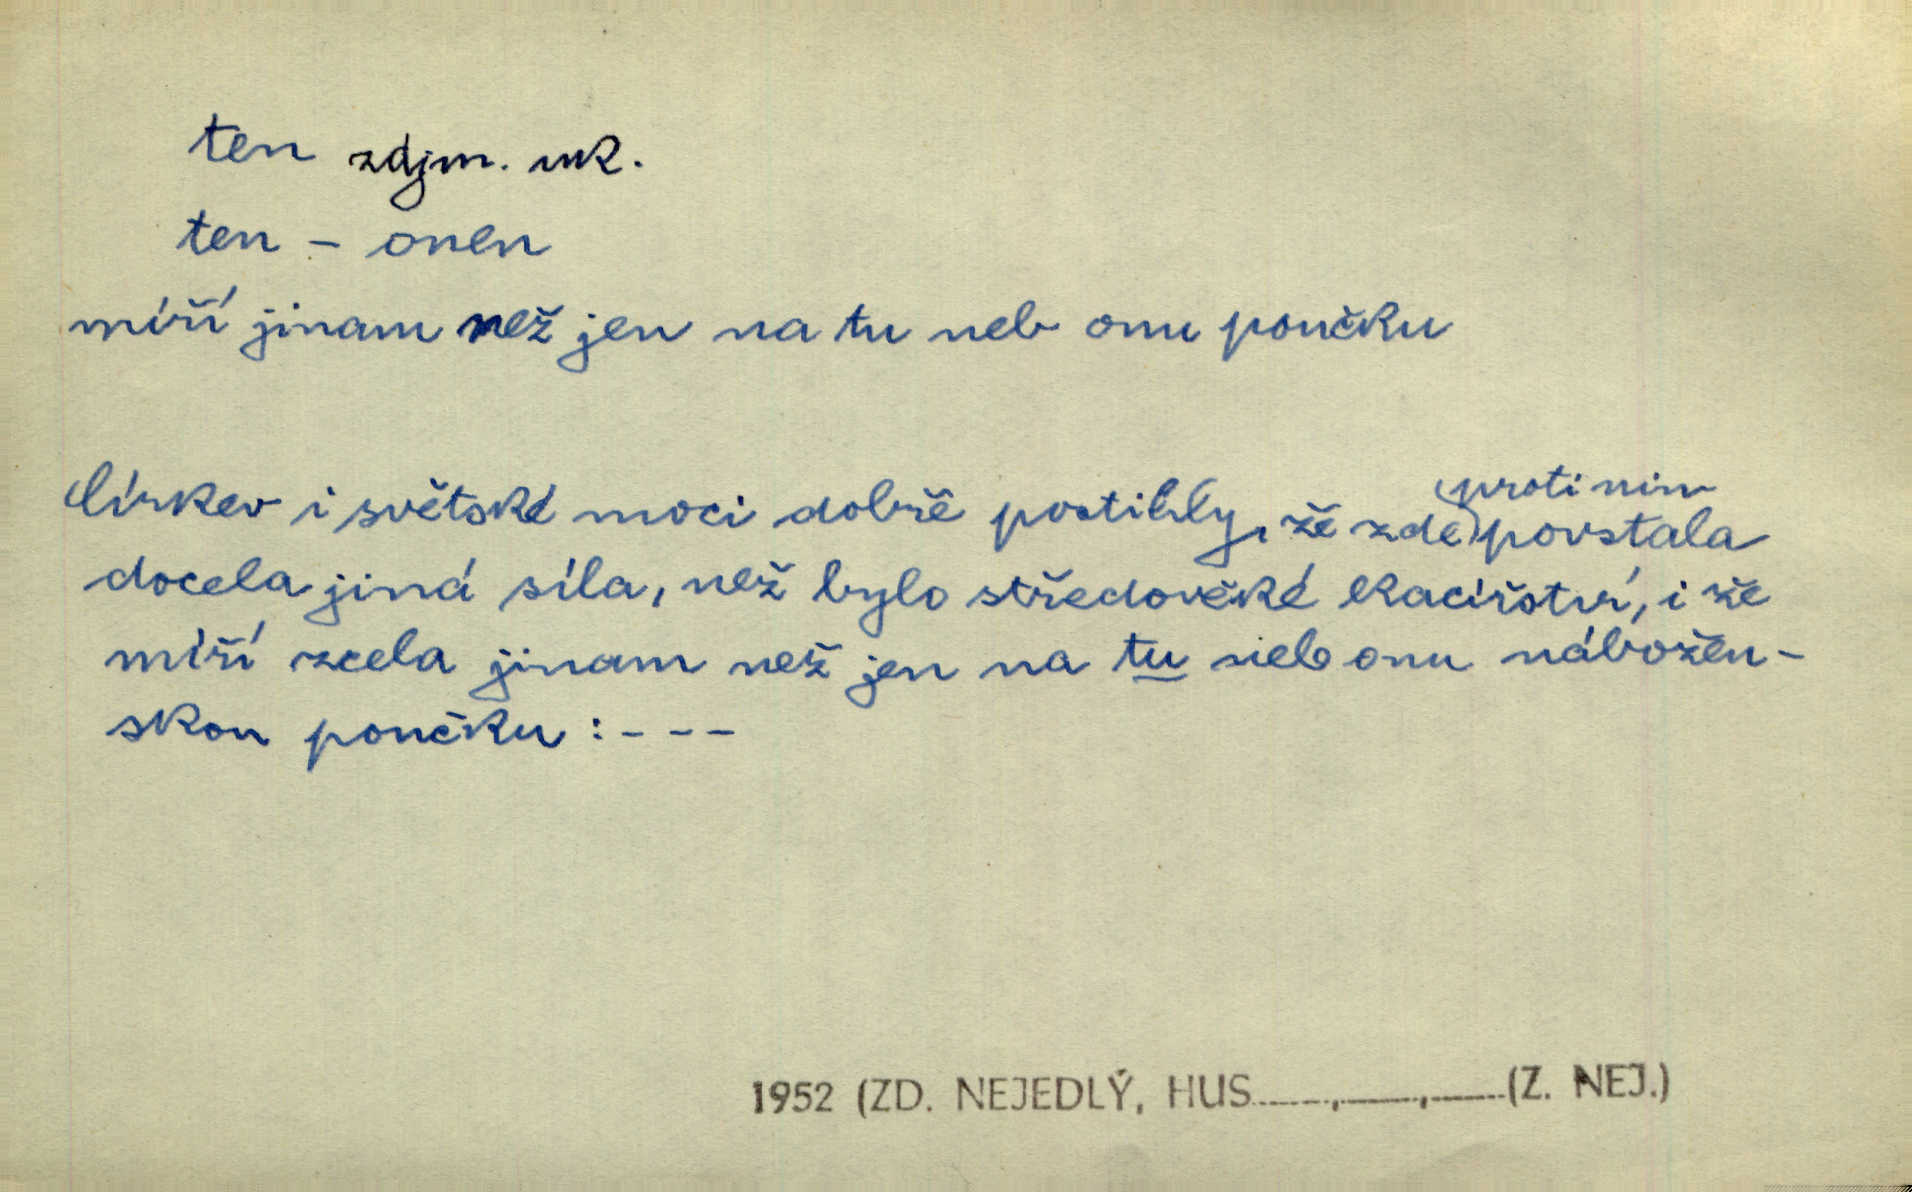 ten zdjm. uk.
ten – onen
míří jinam než jen na tu neb onu poučku
Církev i světské moci dobře postihly, že zde proti nim povstala
docela jiná síla, než bylo středověké kacířství, i že
míří zcela jinam než jen na tu neb onu nábožen-
skou poučku : - - -
1952 (ZD. NEJEDLÝ, HUS......,......,......(Z. NEJ.)